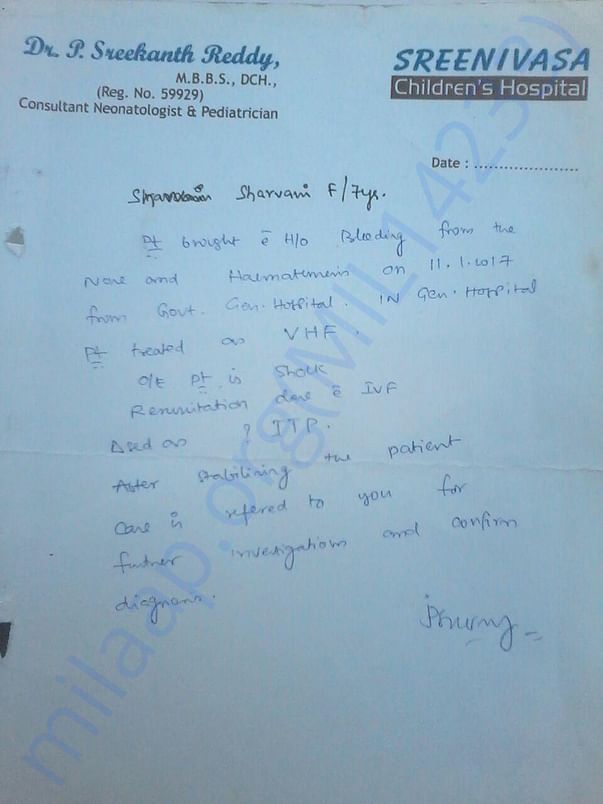 Dr. P. Sreekanth Reddy,
M.B.B.S., DCH.,
(Reg. No. 59929)
Consultant Neonatologist & Pediatrician
SREENIVASA
Children's Hospital
Date : ......................
Sharvani F/7yr.
Pt brought c̄ H/o Bleeding from the
Nose and Haematemesis on 11.1.2017
from Govt. Gen. Hospital. IN Gen. Hospital
Pt treated as VHF.
O/E Pt is Shock
Resusitation done c̄ IVF
? ITP.
After stabilizing the patient
Case is refered to you for
further investigations and confirm
diagnosis.
milaap.org(MIL14232)